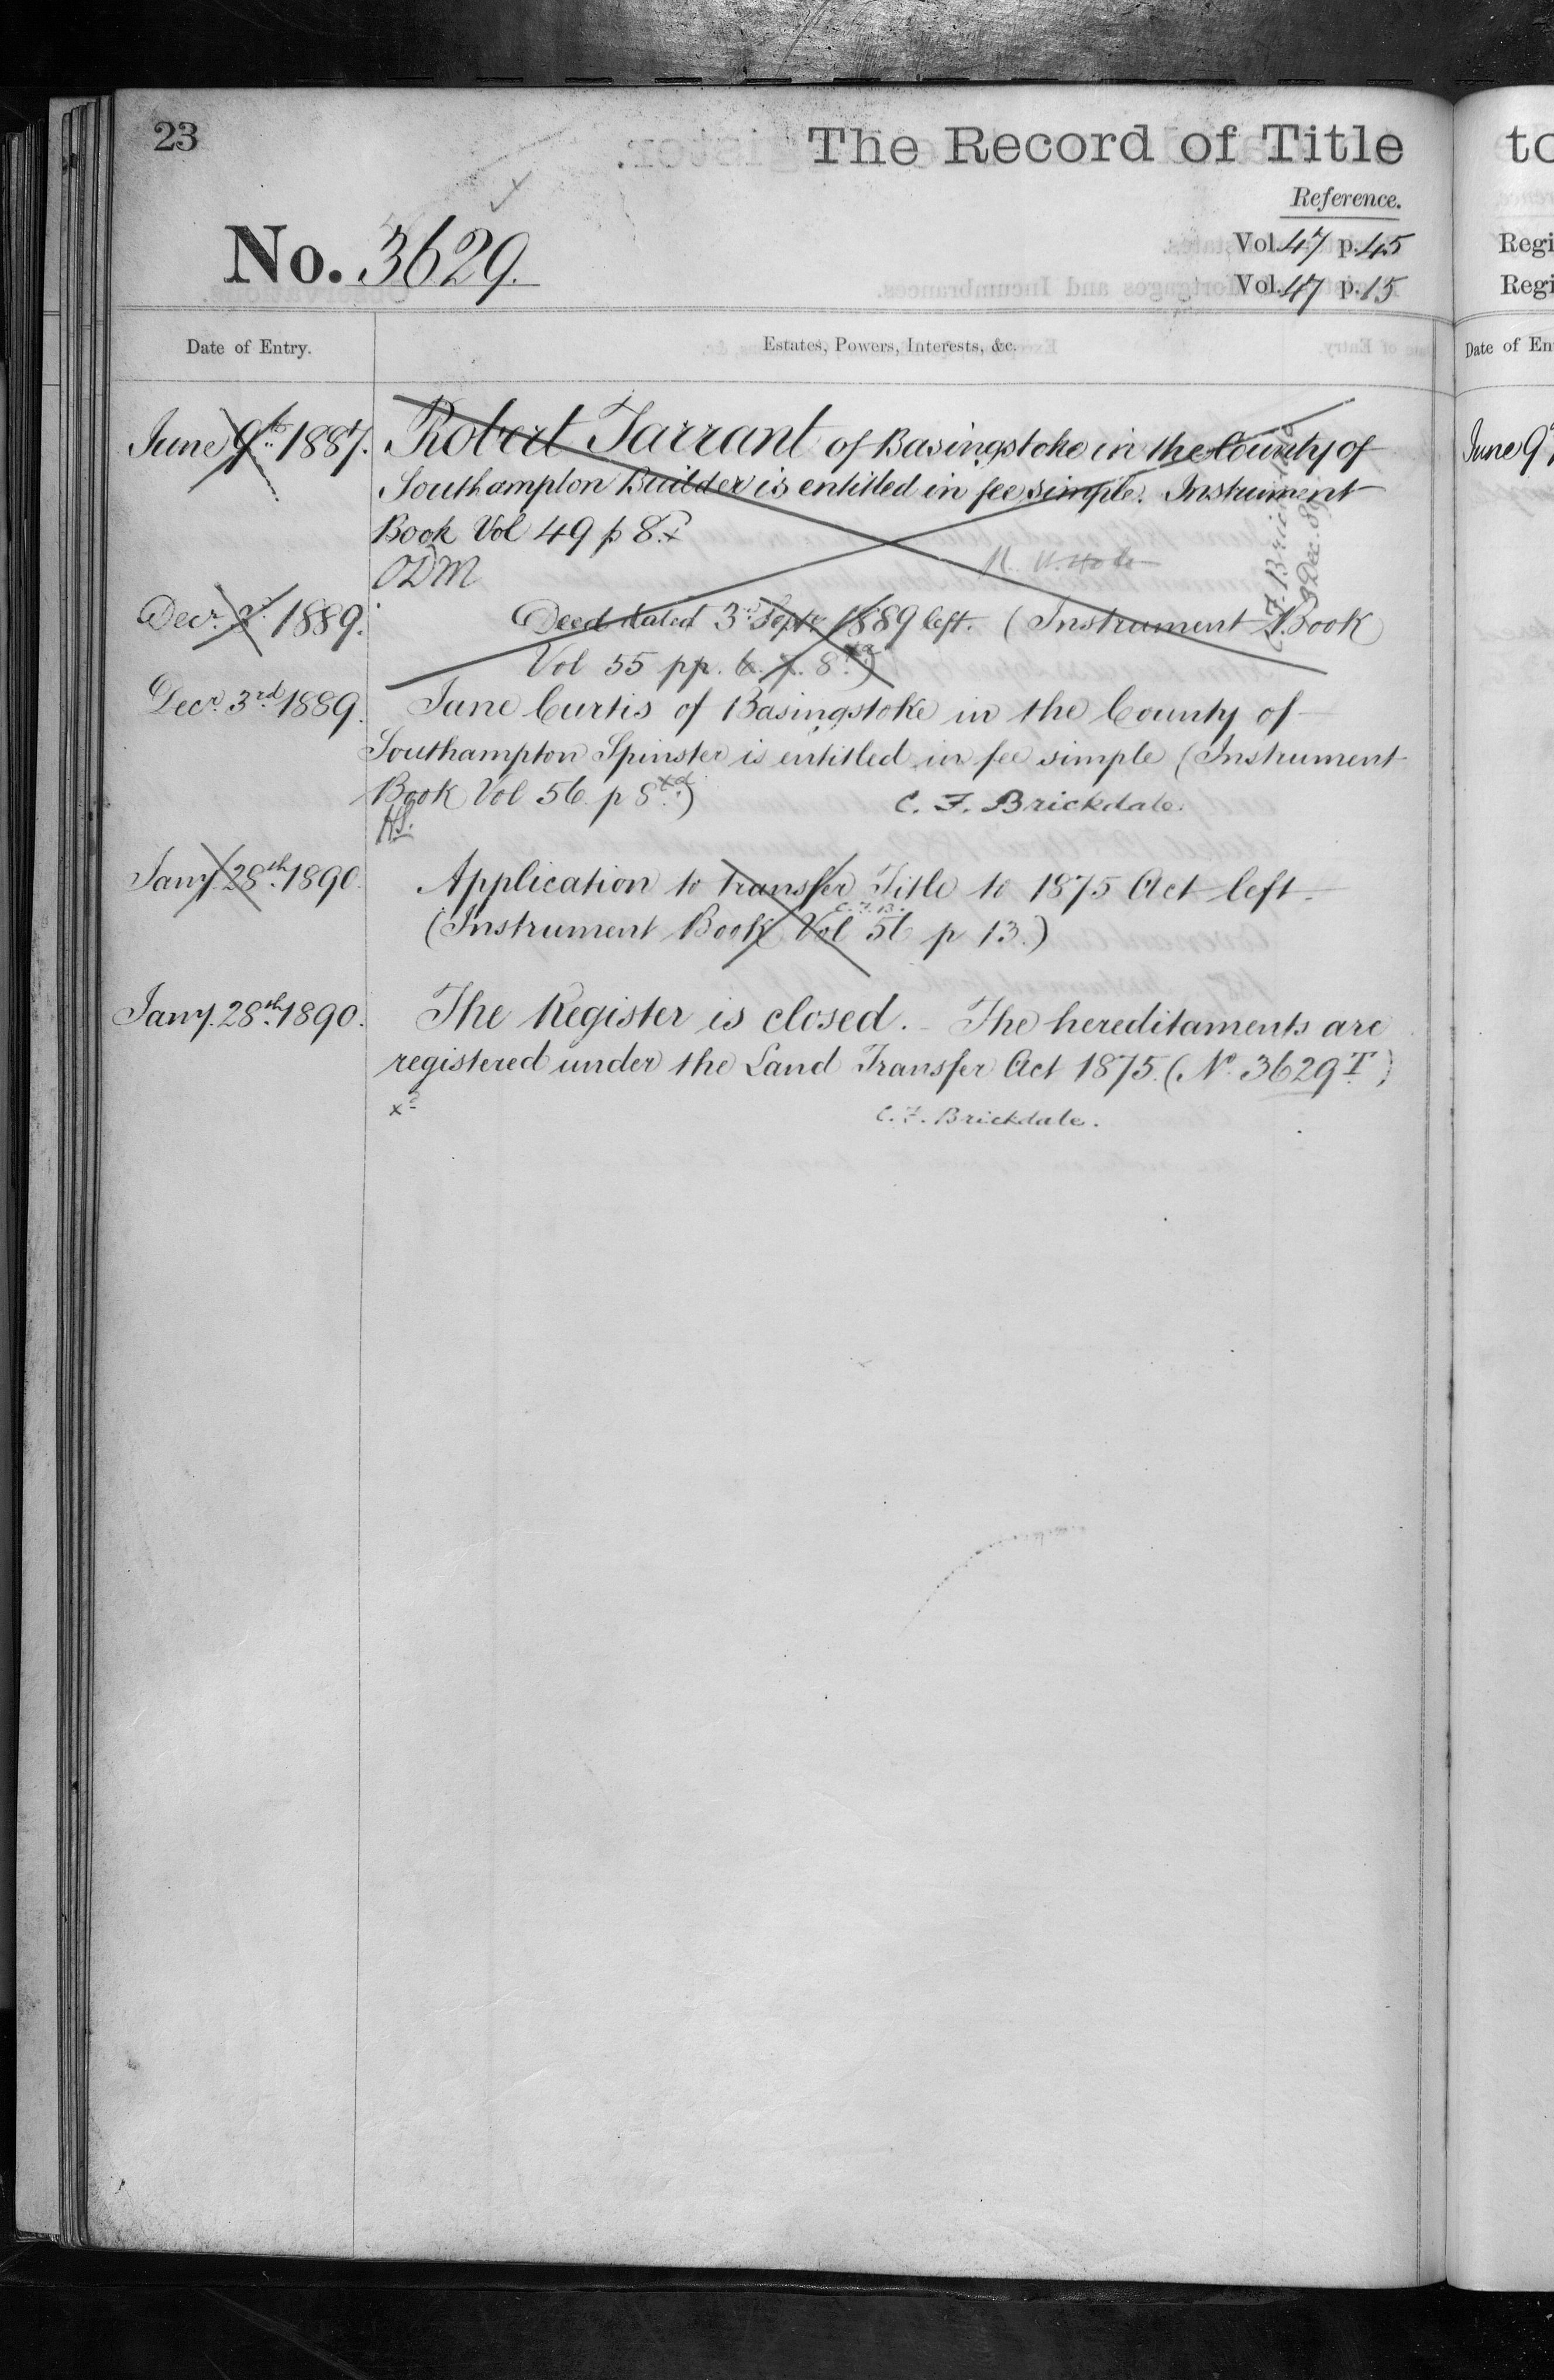 23
The Record of Title
Reference.
No. 3629.
Vol. 47 p. 45
Vol. 47 p. 15
Date of Entry.
Estates, Powers, Interests, &c.
June 9th 1887. Robert Tarrant of Basingstoke in the County of
Southampton Builder is entitled in fee simple. Instrument
Book Vol 49 p 8
ODM
C. F. Brickdale
3 Dec. 89
Decr. 1889. Deed dated 3rd Septr 1889 left. (Instrument Book
Vol 55 pp. 6. 7. 8)
Decr. 3rd 1889. Jane Curtis of Basingstoke in the County of
Southampton Spinster is entitled in fee simple (Instrument
Book Vol 56 p 8)
C. F. Brickdale.
Jany. 28th 1890. Application to transfer Title to 1875 Act left.
C.F.B.
(Instrument Book Vol 56 p 13.)
Jany. 28th 1890. The Register is closed. - The hereditaments are
registered under the Land Transfer Act 1875. (No. 3629T)
C. F. Brickdale.
to
Regi
Regi
Date of En
June 9